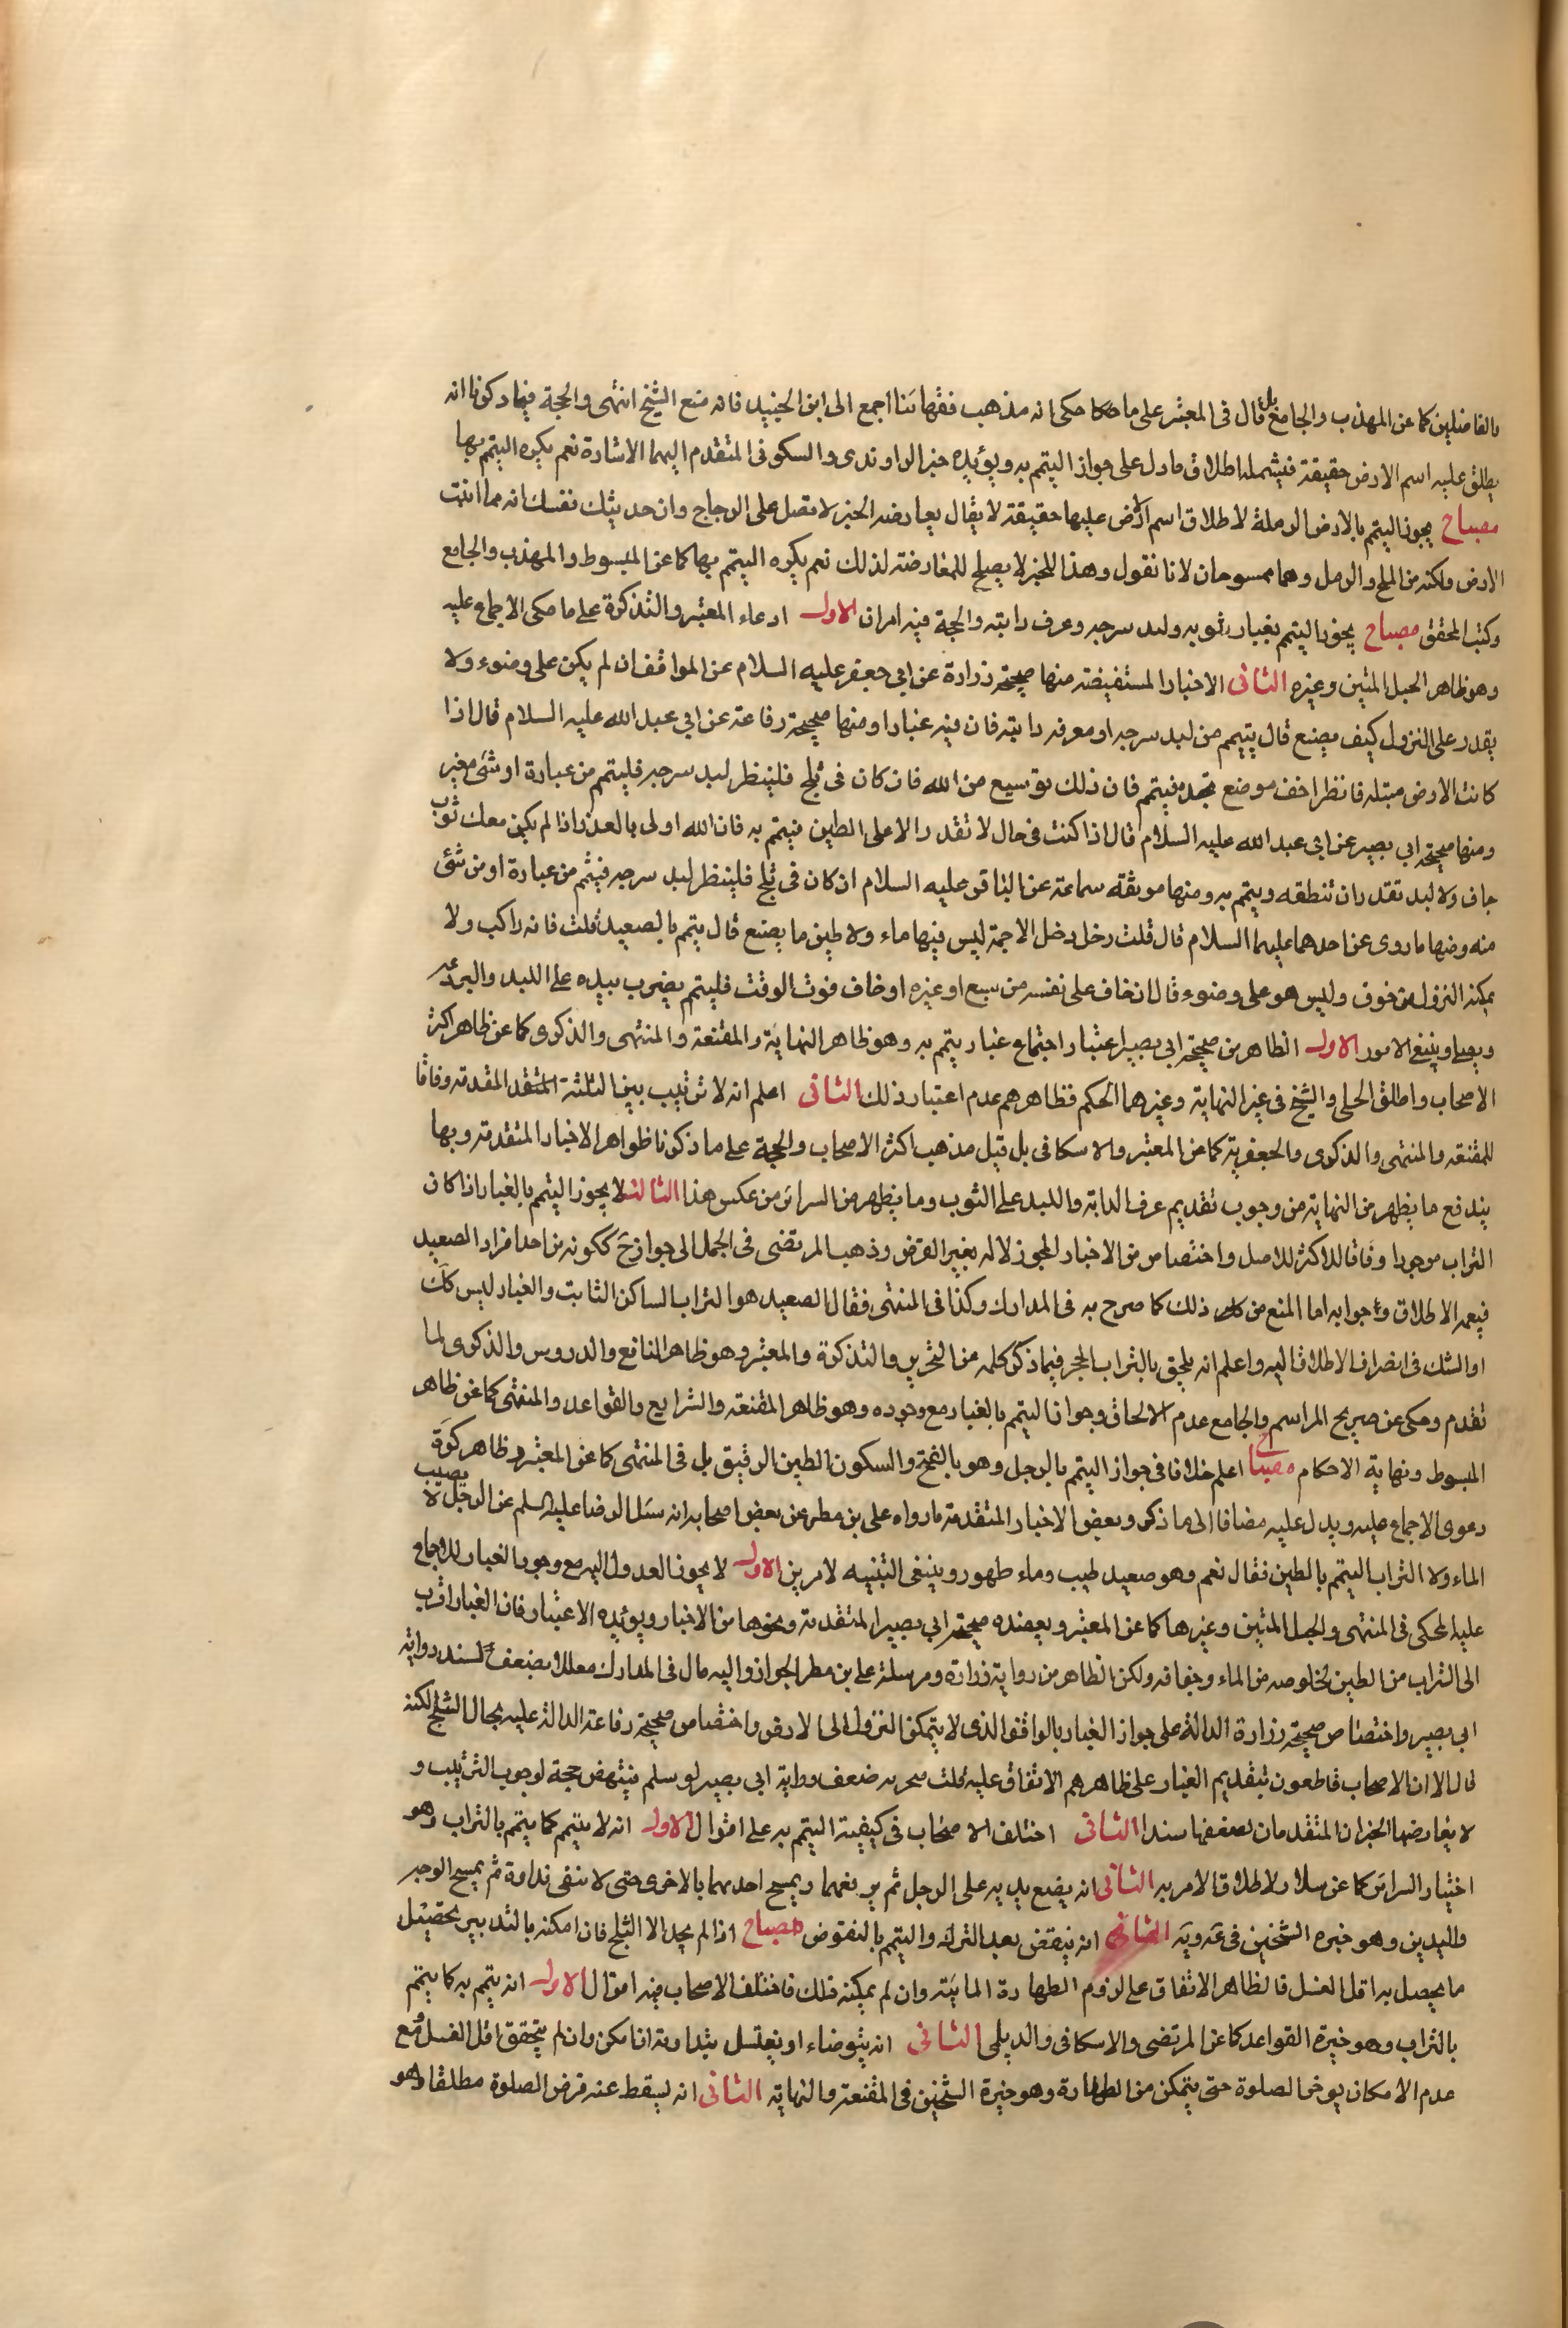 والفاضلين كما عن المهذب والجامع بل قال في المعتبر على ما حكا حكى انه مذهب فقهائنا اجمع الى ابن الجنيد فانه منع الشيخ انتهى والحجة فيما ذكرنا انه
يطلق عليه اسم الارض حقيقة فيشمله اطلاق ما دل على جواز التيمم به ويؤيده خبر الراوندى والسكوني المتقدم اليهما الاشارة نعم يكره التيمم بها
مصباح يجوز التيمم بالارض الرملة لاطلاق اسم الارض عليها حقيقة لا يقال يعارضه الخبر لا تصل على الزجاج وان حدثتك نفسك انه مما انبتت
الارض ولكنه من الملح والرمل وهما ممسوخان لانا نقول وهذا للخبر لا يصلح للمعارضته لذلك نعم يكره التيمم بها كما عن المبسوط والمهذب والجامع
وكتب المحقق مصباح يجوز التيمم بغبار ثوبه ولبد سرجه وعرف دابته والحجة فيه امران الاول ادعاء المعتبر والتذكرة على ما حكى الاجماع عليه
وهو ظاهر الحبل المتين وغيره الثانى الاخبار المستفيضة منها صحيحة زرارة عن ابي جعفر عليه السلام عن المواقف ان لم يكن على وضوء ولا
يقدر على النزول كيف يصنع قال يتيمم من لبد سرجه او معرفه دابته فان فيه غبارا ومنها صحيحة رفاعة عن ابي عبد الله عليه السلام قال اذا
كانت الارض مبتله فانظر اخف موضع تجده فيتمم فان ذلك توسيع من الله فان كان في ثلج فلينظر لبد سرجه فليتمم من غباره او شئ مغبر
ومنها صحيحة ابي بصير عن ابي عبد الله عليه السلام قال اذا كنت في حال لا تقدر الا على الطين فيتمم به فان الله اولى بالعذر اذا لم يكن معك ثوب
جاف ولا لبد تقدر ان تنطقه ويتمم به ومنها موثقة سماعة عن الباقر عليه السلام ان كان في ثلج فلينظر لبد سرجه فيتمم من غباره او من شئ
منه ومنها ما روى عن احدهما عليهما السلام قال قلت رخل دخل الاجمة ليس فيها ماء ولا طين ما يصنع قال يتمم بالصعيد قلت فانه راكب ولا
يمكنه النزول من خوف وليس هو على وضوء قال ان خاف على نفسه من سبع او غيره او خاف فوت الوقت فليتمم يضرب بيده على اللبد والبردعة
ويصلي وينبغ الامور الاول الظاهر من صحيحة ابي بصير اعتبار اجتماع غبار يتمم به وهو ظاهر النهاية والمقنعة والمنتهى والذكرى كما عن ظاهر اكثر
الاصحاب واطلق الحلي والشيخ في غير النهاية وغيرهما الحكم فظاهرهم عدم اعتبار ذلك الثانى اعلم انه لا ترتيب بين الثلثة المتقد المقدمة وفاقا
للمقنعه والمنتهى والذكرى والجعفرية كما عن المعتبر والاسكافى بل قيل مذهب اكثر الاصحاب والحجة على ما ذكرنا ظواهر الاخبار المتقدمة وبها
يندفع ما يظهر من النهاية من وجوب تقديم عرف الدابة واللبد على الثوب وما يظهر من السرائر من عكس هذا الثالث لا يجوز التيمم بالغبار اذا كان
التراب موجودا وفاقا للاكثر للاصل واختصاص من الاخبار المجوز لاله بغير الفرض وذهب المرتضى في الجمل الى جوازح ككونه من احد افراد الصعيد
فيعمه الاطلاق وجوابه اما المنع من كل ذلك كما صرح به في المدارك وكذا في المنتهى فقال الصعيد هو التراب الساكن الثابت والغبار ليس كك
او الشك في انصراف الاطلاق اليه واعلم انه يلحق بالتراب الحجر فيما ذكر كلمه من التحرير والتذكرة والمعتبر وهو ظاهر النافع والدروس والذكرى لما
تقدم وحكى عن صريح المراسم والجامع عدم الالحاق وجواز التيمم بالغبار مع وجوده وهو ظاهر المقنعه والشرايع والقواعد والمنتهى كما عن ظاهر
المبسوط ونهاية الاحكام مصباح اعلم خلافا في جواز التيمم بالوحل وهو بالفتحة والسكون الطين الرقيق بل في المنتهى كما عن المعتبر وظاهر كرة
دعوى الاجماع عليه ويدل عليه مضافا الى ما ذكر وبعض الاخبار المتقدمة ما رواه على بن مطر عن بعض اصحابه انه سئل الرضا عليه السلم عن الرجل لا يصيب
الماء ولا التراب التيمم بالطين فقال نعم وهو صعيد طيب وماء طهور وينبغى التنبيه لامرين الاول لا يجوز العدول اليه مع وجود الغبار للاجماع
عليه المحكى في المنتهى والحبل المتين وغيرها كما عن المعتبر ويعضده صحيحة ابي بصير المتقدمة ونحوها من الاخبار ويؤيده الاعتبار فان الغبار اقرب
الى التراب من الطين لخلوصه من الماء وجفافه ولكن الظاهر من رواية زرارة ومرسلة على بن مطر الجواز واليه مال في المدارك معللا بضعف السند رواية
ابي بصير واختصاص صحيحة زرارة الدالة على جواز الغبار بالواقف الذى لا يتمكن النزول الى الارض واختصاص صحيحة رفاعة الدالة عليه بحال الثلج لكنه
قال الا ان الاصحاب قاطعون بتقديم الغبار على ظاهرهم الاتفاق عليه قلت ضعف رواية ابي بصير لو سلم ينتهض حجة لوجوب الترتيب و
لا يعارضها الخبران المتقدمان لضعفها سندا الثانى اختلف الاصحاب في كيفية التيمم به على اقوال الاول انه لا يتيمم كما يتمم بالتراب وهو
اختيار السرائر كما عن سلار ولاطلاق الامر به الثانى انه يضع يديه على الوحل ثم يرفعهما ويمسح احدهما بالاخرى حتى لا تبقى نداوة ثم يمسح الوجه
واليدين وهو خيره الشيخين في عة وية الثانى انه ينفض بعد الترك والتيمم بالنفوض مصباح اذا لم يجد الا الثلج فان امكنه بالتدبير بحصيل
ما يحصل به اقل الغسل فالظاهر الاتفاق على لزوم الطهارة المائية وان لم يمكنه فلك فاختلف الاصحاب فيه اقوال الاول انه يتمم به كما يتمم
بالتراب وهو خيرة القواعد كما عن المرتضى والاسكافى والديلمى الثانى انه يتوضاء او يغتسل بنداوته ان امكن وان لم يتحقق اقل الغسل ومع
عدم الامكان يوخر الصلوة حتى يتمكن من الطهارة وهو خيرة الشيخين في المقنعة والنهاية الثانى انه يسقط عنه فرض الصلوة مطلقا وهو